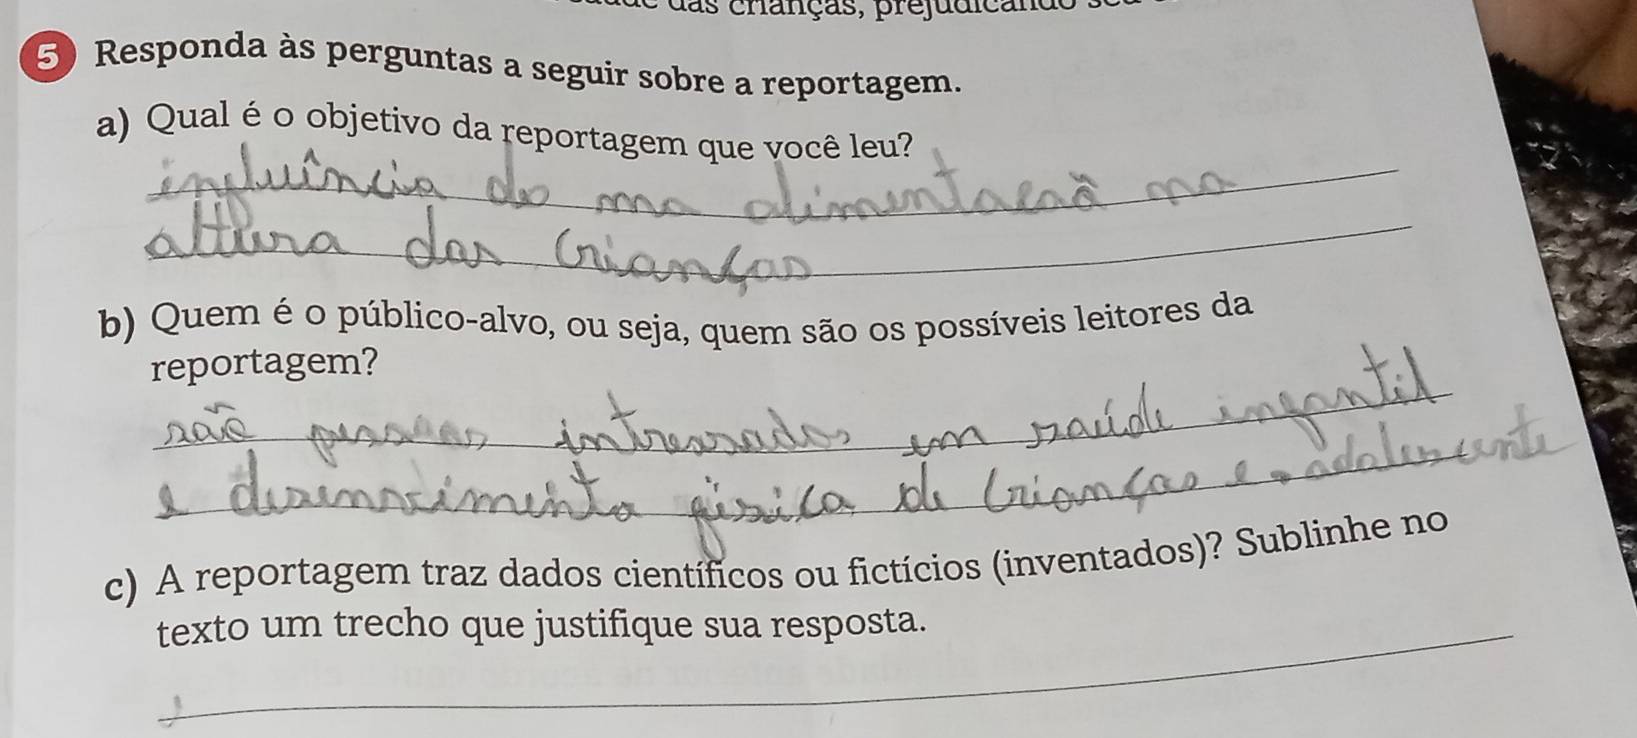 das crianças, prejudicando
5 Responda às perguntas a seguir sobre a reportagem.
a) Qual é o objetivo da reportagem que você leu?
influência do ma alimentacaõ ma
altura das crianças
b) Quem é o público-alvo, ou seja, quem são os possíveis leitores da
reportagem?
são pessoas intressados em saúde infantil
e desenvcimento físico de crianças e adolescente
c) A reportagem traz dados científicos ou fictícios (inventados)? Sublinhe no
texto um trecho que justifique sua resposta.